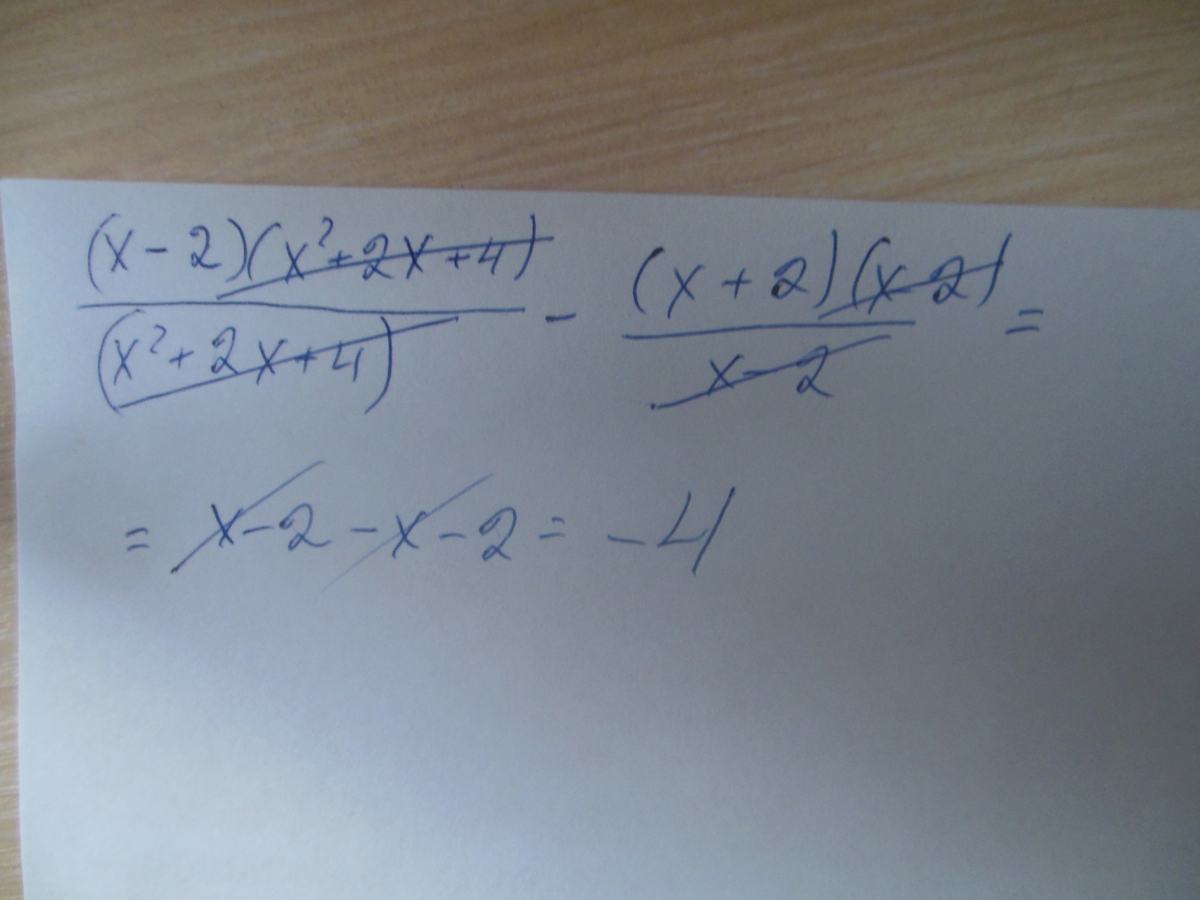 (x-2)(x²+2x+4)/(x²+2x+4) - (x+2)(x-2)/x-2 =
= x-2-x-2 = -4